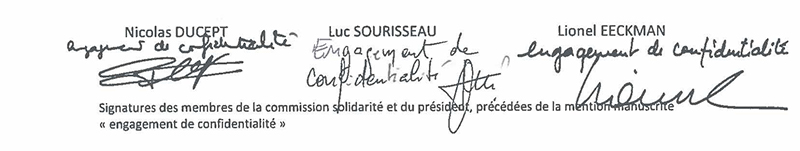 Nicolas DUCEPT Luc SOURISSEAU Lionel EECKMAN
engagement de confidentialité
Engagement de
confidentialité
engagement de confidentialité
Signatures des membres de la commission solidarité et du président, précédées de la mention manuscrite
« engagement de confidentialité »